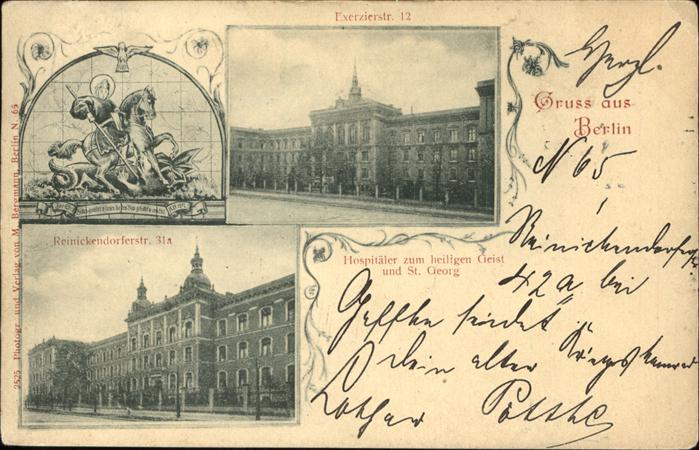 Exerzierstr. 12
Gruss aus
Berlin
N 65
Reinickendorferstr. 31a
Hospitäler zum heiligen Geist
und St. Georg
Herzl.
Reinickendorferstr
42a bei
sendet
Dein alter Kriegskamerad
Lothar
2525 Photogr. und Verlag von M. Bergmann, Berlin N. 65